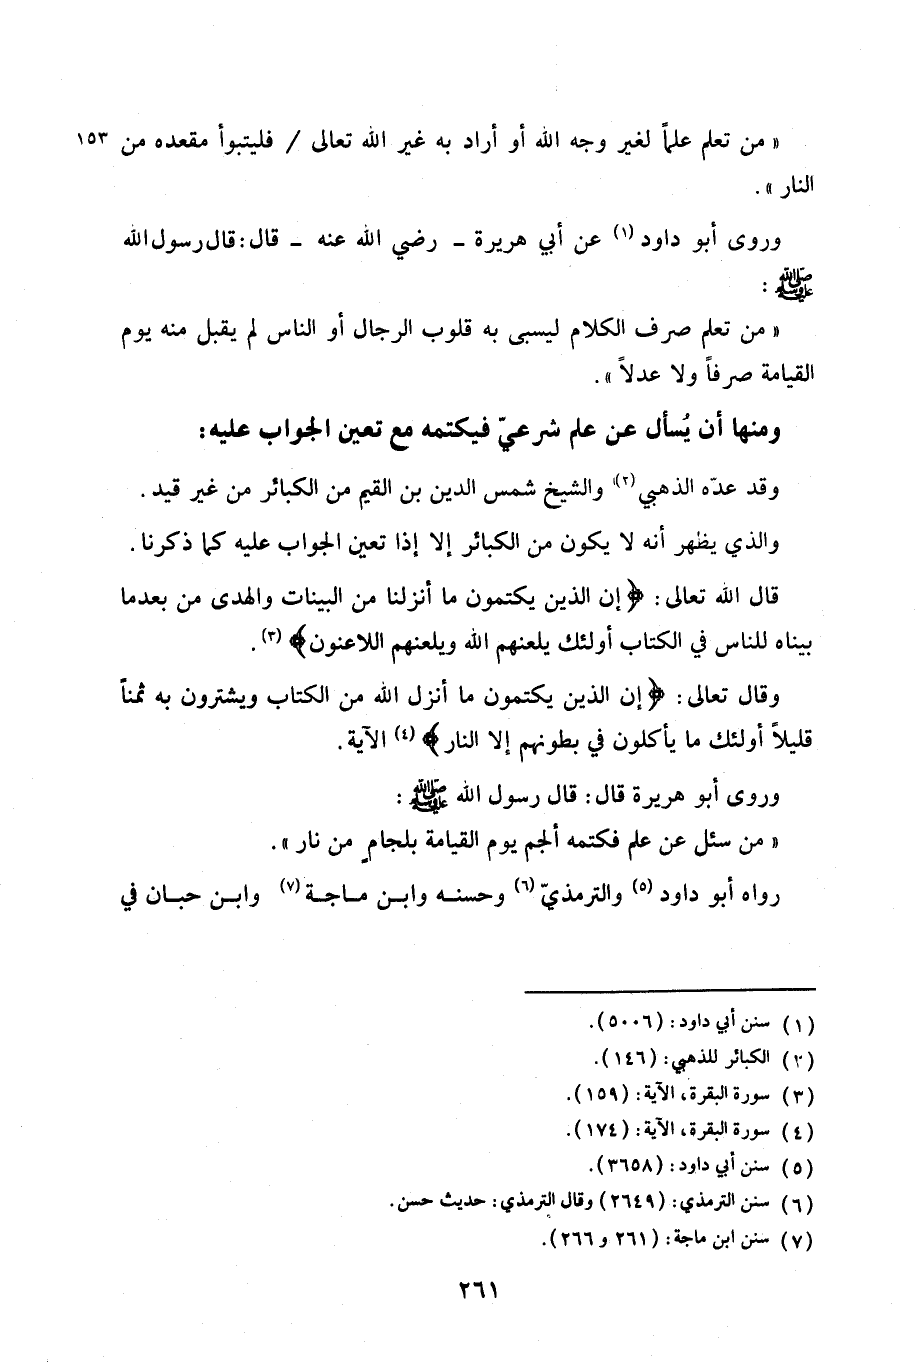 « من تعلم علماً لغير وجه الله أو أراد به غير الله تعالى / فليتبوأ مقعده من ١٥٣
النار ».
وروى أبو داود (١) عن أبي هريرة – رضي الله عنه – قال: قال رسول الله
ﷺ :
« من تعلم صرف الكلام ليسبى به قلوب الرجال أو الناس لم يقبل منه يوم
القيامة صرفاً ولا عدلاً ».
ومنها أن يُسأل عن علم شرعيّ فيكتمه مع تعين الجواب عليه:
وقد عدّه الذهبي (٢) والشيخ شمس الدين بن القيم من الكبائر من غير قيد .
والذي يظهر أنه لا يكون من الكبائر إلا إذا تعين الجواب عليه كما ذكرنا .
قال الله تعالى : ﴿ إن الذين يكتمون ما أنزلنا من البينات والهدى من بعدما
بيناه للناس في الكتاب أولئك يلعنهم الله ويلعنهم اللاعنون ﴾ (٣) .
وقال تعالى : ﴿ إن الذين يكتمون ما أنزل الله من الكتاب ويشترون به ثمناً
قليلاً أولئك ما يأكلون في بطونهم إلا النار ﴾ (٤) الآية .
وروى أبو هريرة قال : قال رسول الله ﷺ :
« من سئل عن علم فكتمه ألجم يوم القيامة بلجامٍ من نار ».
رواه أبو داود (٥) والترمذيّ (٦) وحسنه وابن ماجة (٧) وابن حبان في
(١) سنن أبي داود : (٥٠٠٦).
(٢) الكبائر للذهبي : (١٤٦).
(٣) سورة البقرة ، الآية : (١٥٩).
(٤) سورة البقرة ، الآية : (١٧٤).
(٥) سنن أبي داود : (٣٦٥٨).
(٦) سنن الترمذي : (٢٦٤٩) وقال الترمذي : حديث حسن .
(٧) سنن ابن ماجة : (٢٦١ و ٢٦٦).
٢٦١